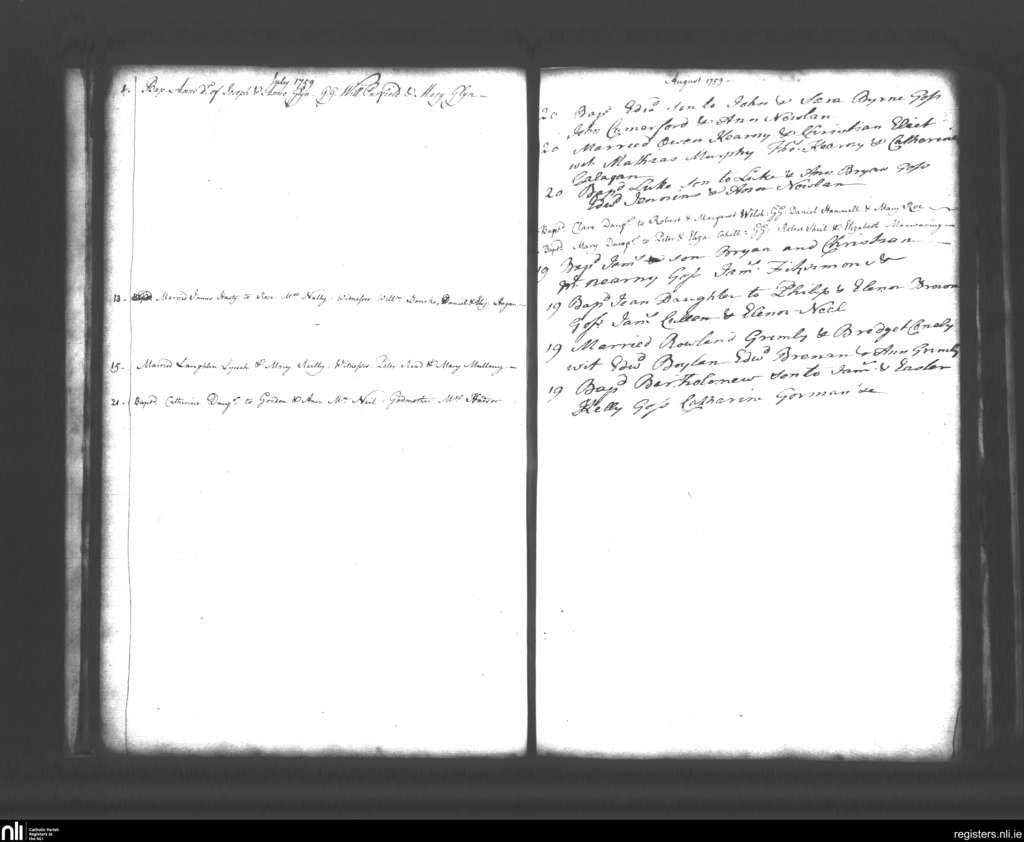 July 1759
4. Bap. Anne Dr. of Joseph & Anne Glyn. GG Will Patfield & Mary Glyn
13. Married James to Rose Mc Nally. Witnesses Willm
15. Married Laughlin Lynch & Mary Reilly. Witnesses Peter & Mary
21. Baptd. Catherine Daughr. to Gordon & Ann Mc Neil. Godmother Mrs. Hadsor
August 1759
20 Bapd Edwd son to John & Sara Byrne Goss
John Comerford & Ann Nowlan
20 Married Owen Kearny & Christian Eliet
wit Mathias Murphy Thos Kearny & Catharine
Galagan
20 Bapd Luke son to Luke & Ann Bryan Goss
Edwd Jennins & Ann Nowlan
Baptd. Clare Daughr. to Robert & Margaret Welsh. GG. Daniel Hammell & Mary Roe
Baptd. Mary Daughr. to Peter & Eliza Cahill. GG. Robert & Elizabeth Manwaring
19 Bapd Jams son Bryan and Christian
Kearny Goss Jams Fitzsimons &
19 Bapd Jean Daughter to Philip & Elenor Brown
Goss Jams Cullen & Elenor Neil
19 Married Rowland Grimly & Bridget Conely
wit Edwd Boylan Edwd Brenan & Ann Grimly
19 Bapd Bartholomew son to Jams & Easter
Kelly Goss Catharine Gorman &c
nli
Catholic Parish
Registers at
the NLI
registers.nli.ie